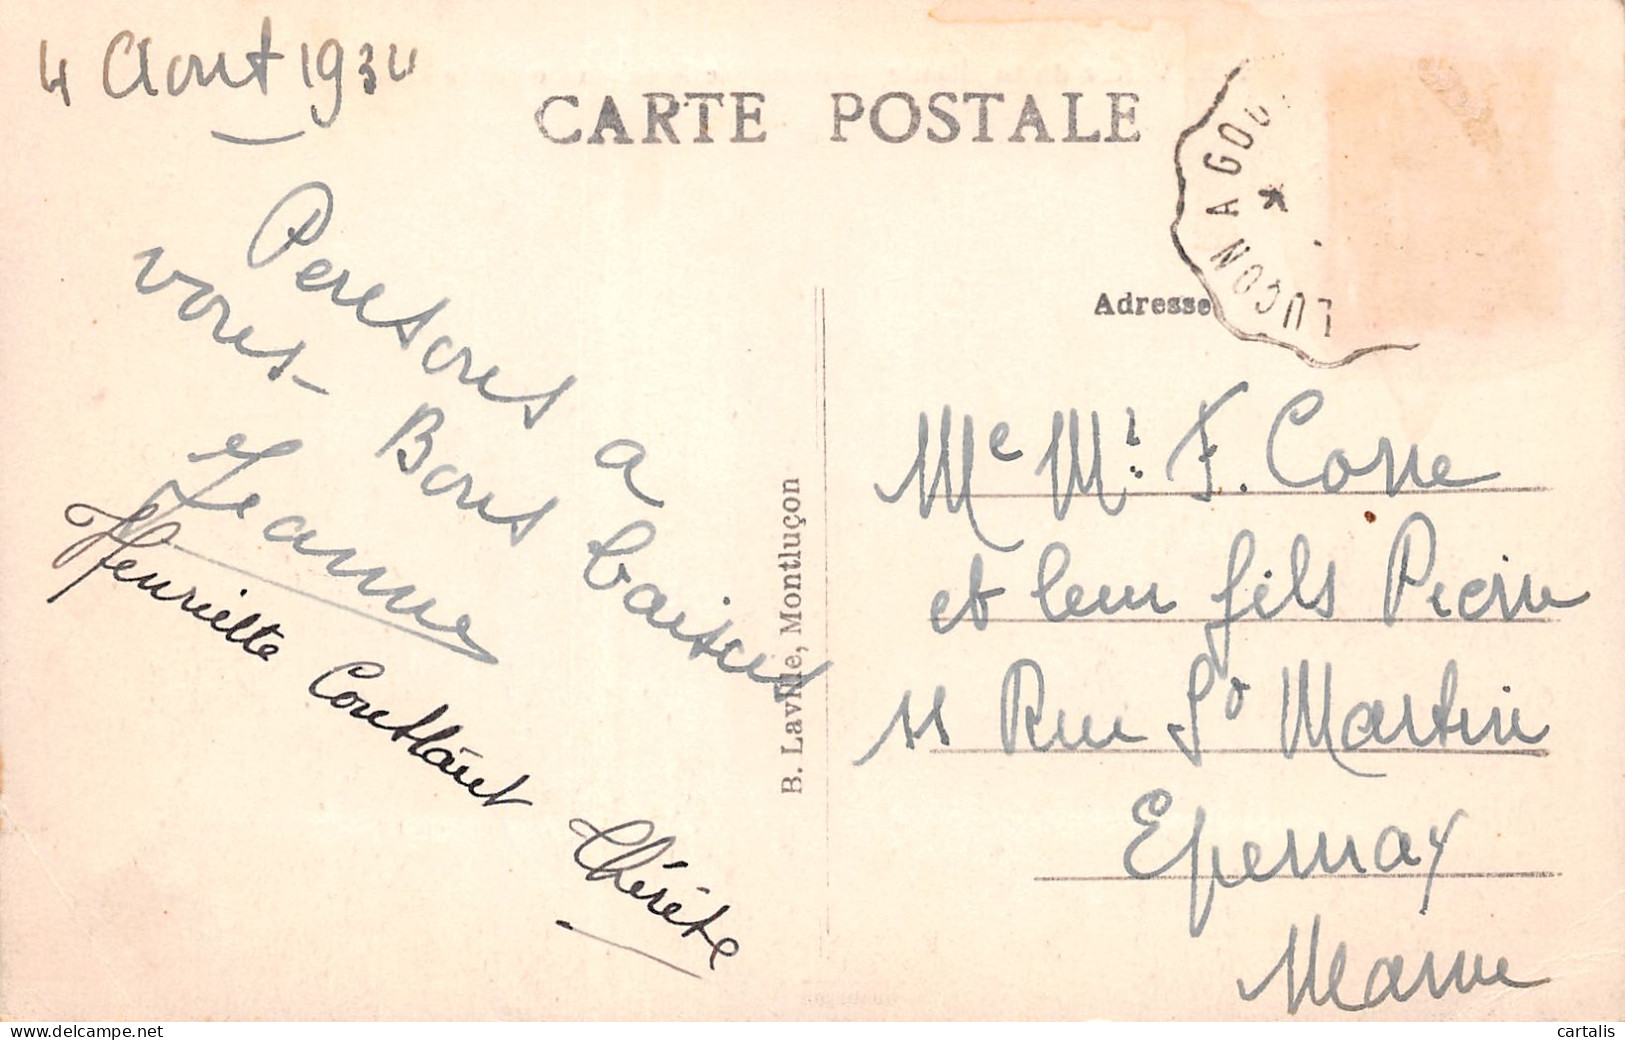 4 Aout 1934
CARTE POSTALE
LUCON A GOU
Adresse
Pensons a
vous - Bons baisers
Jeanne
Henriette Coutant Thérète
B. Laville, Montluçon
Me Mr. F. Cosse
et leur fils Pierre
11 Rue St Martin
Epernay
Marne
cartalis